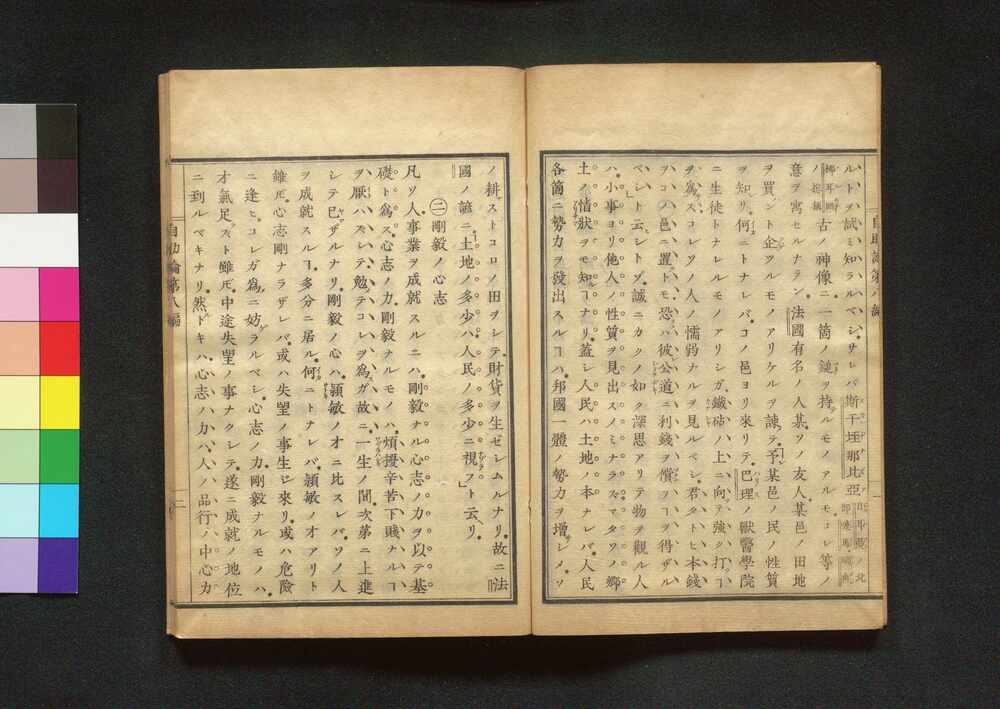 ルトヲ試ミ知ラルベシ。サレバ斯干垤那比亞
古ノ神像ニ一箇ノ鎚ヲ持ルモノアルモ。コレ等ノ
意ヲ寓セルナラン。法國有名ノ人某ソノ友人某邑ノ田地
ヲ買ント企ツルモノアリケルヲ諫テ。予某邑ノ民ノ性質
ヲ知リ。何ニトナレバコノ邑ヨリ來リテ巴理ノ獸醫學院
ニ生徒トナレルモノアリシガ。鐵砧ノ上ニ向テ強ク打ヿ
ヲ爲ス。コレソノ人ノ懦弱ナルヲ見ルベシ。君タトヒ本錢
ヲコノ邑ニ置トモ。恐ハ彼公道ニ利錢ヲ償フヿヲ得ザル
ベシト云シトゾ。誠ニカクノ如ク深思アリテ物ヲ觀ル人
ハ。小事ヨリ他人ノ性質ヲ見出スノミナラズ。マタソノ郷
土ノ情狀ヲモ知ヿナリ。蓋シ人民ハ土地ノ本ナレバ。人民
各箇ニ勢力ヲ發出スルヿハ。邦國一體ノ勢力ヲ增シ。ソ
ノ耕ストコロノ田ヲシテ。財貨ヲ生ゼシムルナリ。故ニ法
國ノ諺ニ。土地ノ多少ハ人民ノ多少ニ視フト云リ。
㊁剛毅ノ心志
凡ソ人事業ヲ成就スルニハ。剛毅ナル心志ノ力ヲ以テ基
礎ト爲ス。心志ノ力剛毅ナルモノハ。煩擾辛苦下賤ナルヿ
ヲ厭ハズシテ。勉テコレヲ爲ガ故ニ。一生ノ間。次第ニ上進
シテ已ザルナリ。剛毅ノ心ハ。頴敏ノオニ比スレバ。ソノ人
ヲ成就スルヿ。多分ニ居ル。何ニトナレバ。頴敏ノオアリト
雖𪜈。心志剛ナラザレバ。或ハ失望ノ事生ジ來リ。或ハ危險
ニ逢ヒ。コレガ爲ニ妨ラルベシ。心志ノ力剛毅ナルモノハ。
才氣足ズト雖𪜈。中途失望ノ事ナクシテ。遂ニ成就ノ地位
ニ到ルベキナリ。然ドキハ。心志ノ力ハ。人ノ品行ノ中心力
自助論第八編